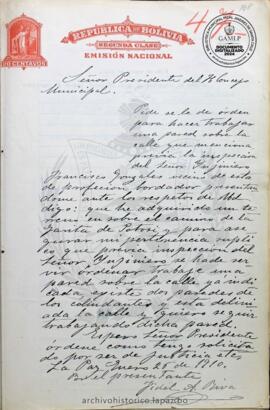 REPUBLICA DE BOLIVIA
SEGUNDA CLASE
EMISIÓN NACIONAL
CENTAVOS
GAMLP
DOCUMENTO
DIGITALIZADO
2024
Señor Presidente del H. Concejo
Municipal.
Pide se le dé órden
para hacer trabajar
una pared sobre la
calle que menciona
previa la inspección
del Señor Injeniero
Francisco Gonzales vecino de esta
de profesion bordador presentan
dome ante los respetos de Ud
digo: que he adquirido un te
rreno sobre el camino de la
Garita de Potosí y para ase
gurar mi pertenencia, supli
co que previa inspeccion del
Señor Yngeniero se ha de ser
vir órdenar trabaje una
pared sobre la calle ya indi
cada, existe dos paredes de
los colindantes y esta delini
ada la calle y quiero seguir
trabajando dicha pared.
Espero Señor Presidente
órdene como tengo solicita
do por ser de justicia etc
La Paz, Enero 25 de 1910.
Por el presentante
Fidel A
archivohistorico.lapaz.bo